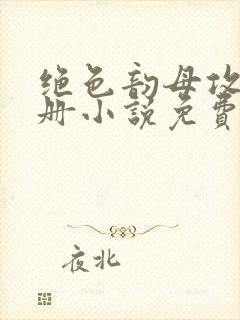 绝色韵母攻
册小说免费
夜北